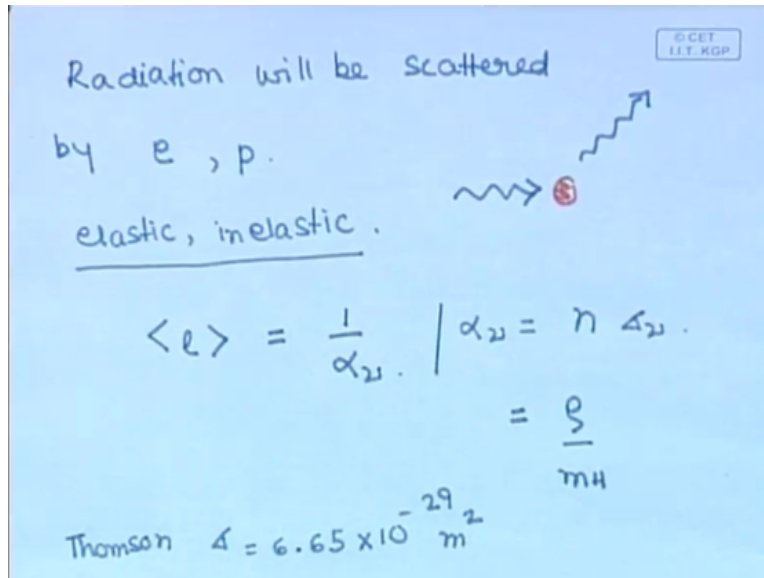 © CET
I.I.T. KGP
Radiation will be scattered
by e, p.
elastic, inelastic.
<l> = 1/α_ν. | α_ν = n σ_ν.
= ρ/mH
Thomson σ = 6.65 × 10^-29 m^2